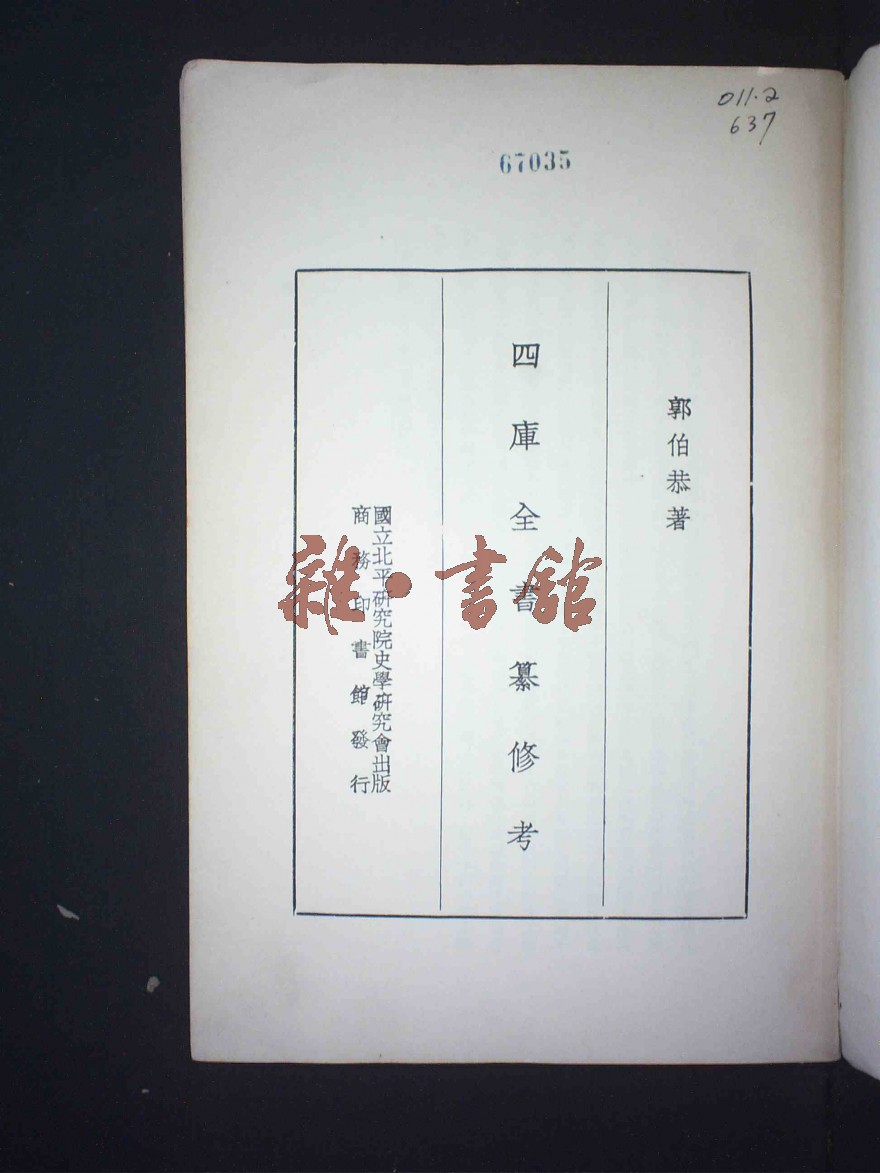 011.2
637
67035
郭伯恭著
四庫全書纂修考
國立北平研究院史學研究會出版
商務印書館發行
雜·書館